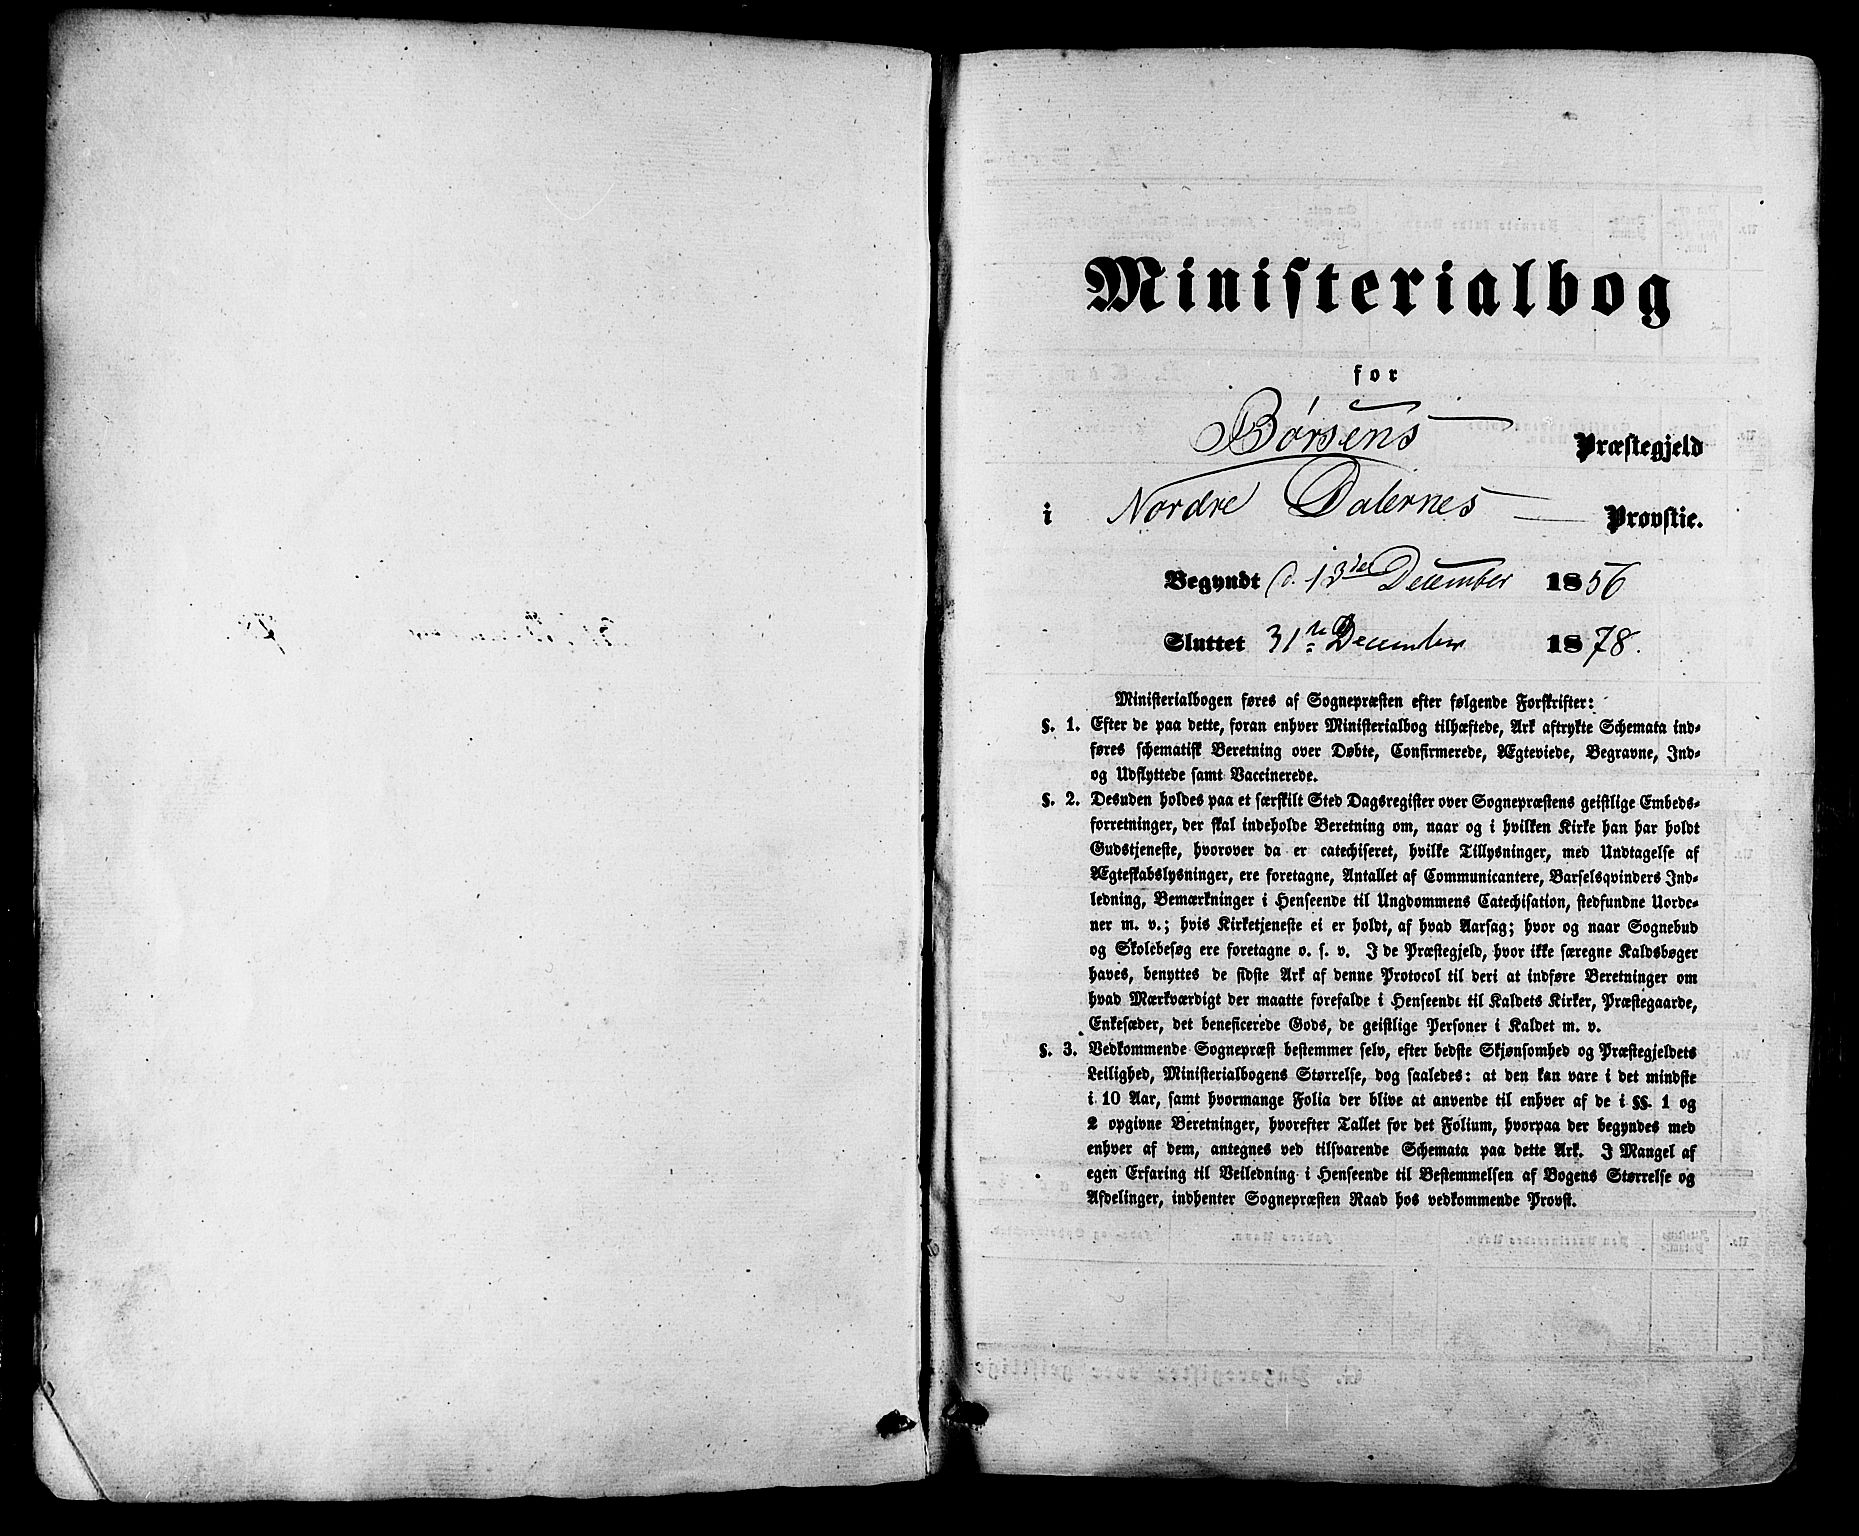 Ministerialbog
for
Børsens Præstegjeld
i Nordre Dalernes Provstie.
Begyndt d. 13de December 1856
Sluttet 31te December 1878.
Ministerialbogen føres af Sognepræsten efter følgende Forskrifter:
§. 1. Efter de paa dette, foran enhver Ministerialbog tilhæftede, Ark aftrykte Schemata ind-
føres schematisk Beretning over Døbte, Confirmerede, Ægteviede, Begravne, Ind-
og Udflyttede samt Vaccinerede.
§. 2. Desuden holdes paa et særskilt Sted Dagsregister over Sognepræstens geistlige Embeds-
forretninger, der skal indeholde Beretning om, naar og i hvilken Kirke han har holdt
Gudstjeneste, hvorover da er catechiseret, hvilke Tillysninger, med Undtagelse af
Ægteskabslysninger, ere foretagne, Antallet af Communicantere, Barselsqvinders Ind-
ledning, Bemærkninger i Henseende til Ungdommens Catechisation, stedfundne Uorde-
ner m. v.; hvis Kirketjeneste ei er holdt, af hvad Aarsag; hvor og naar Sognebud
og Skolebesøg ere foretagne o. s. v. I de Præstegjeld, hvor ikke særegne Kaldsbøger
haves, benyttes de sidste Ark af denne Protocol til deri at indføre Beretninger om
hvad Mærkværdigt der maatte forefalde i Henseende til Kaldets Kirker, Præstegaarde,
Enkesæder, det beneficerede Gods, de geistlige Personer i Kaldet m. v.
§. 3. Vedkommende Sognepræst bestemmer selv, efter bedste Skjønsomhed og Præstegjeldets
Leilighed, Ministerialbogens Størrelse, dog saaledes: at den kan vare i det mindste
i 10 Aar, samt hvormange Folia der blive at anvende til enhver af de i §§. 1 og
2 opgivne Beretninger, hvorefter Tallet for det Folium, hvorpaa der begyndes med
enhver af dem, antegnes ved tilsvarende Schemata paa dette Ark. I Mangel af
egen Erfaring til Veiledning i Henseende til Bestemmelsen af Bogens Størrelse og
Afdelinger, indhenter Sognepræsten Raad hos vedkommende Provst.